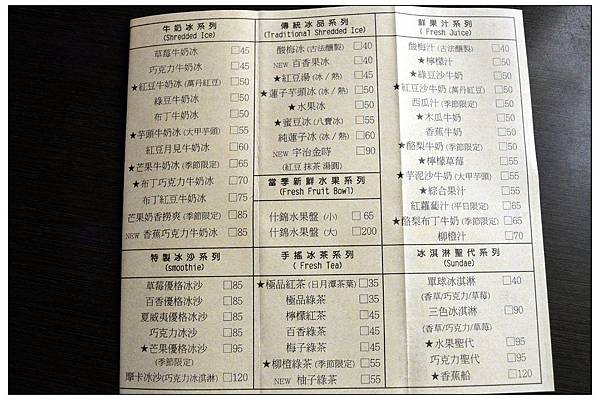 牛奶冰系列
(Shredded Ice)
草莓牛奶冰 □45
巧克力牛奶冰 □45
★紅豆牛奶冰(萬丹紅豆) □50
綠豆牛奶冰 □50
布丁牛奶冰 □50
★芋頭牛奶冰(大甲芋頭) □55
紅豆月見牛奶冰 □60
★芒果牛奶冰(季節限定) □65
★布丁巧克力牛奶冰 □70
布丁紅豆牛奶冰 □75
芒果奶香撈爽(季節限定) □85
NEW 香蕉巧克力牛奶冰 □85
特製冰沙系列
(smoothie)
草莓優格冰沙 □85
百香優格冰沙 □85
夏威夷優格冰沙 □85
巧克力冰沙 □85
★芒果優格冰沙 □95
(季節限定)
摩卡冰沙(巧克力冰淇淋) □120
傳統冰品系列
(Traditional Shredded Ice)
酸梅冰(古法釀製) □40
NEW 百香果冰 □40
★紅豆湯(冰/熱) □45
★蓮子芋頭冰(冰/熱) □50
★水果冰 □50
★蜜豆冰(八寶冰) □55
純蓮子冰(冰/熱) □60
NEW 宇治金時 □90
(紅豆 抹茶 湯圓)
當季新鮮水果系列
(Fresh Fruit Bowl)
什錦水果盤 (小) □65
什錦水果盤 (大) □200
手搖冰茶系列
(Fresh Tea)
★極品紅茶(日月潭茶葉) □35
極品綠茶 □35
檸檬紅茶 □45
百香綠茶 □45
梅子綠茶 □45
★柳橙綠茶(季節限定) □55
NEW 柚子綠茶 □55
鮮果汁系列
(Fresh Juice)
酸梅汁(古法釀製) □40
★檸檬汁 □50
★綠豆沙牛奶 □50
★紅豆沙牛奶(萬丹紅豆) □50
西瓜汁(季節限定) □50
★木瓜牛奶 □50
香蕉牛奶 □50
★酪梨牛奶(季節限定) □50
★檸檬草莓 □55
★芋泥沙牛奶(大甲芋頭) □55
★綜合果汁 □55
紅蘿蔔汁(平日限定) □65
★酪梨布丁牛奶(季節限定) □65
柳橙汁 □70
冰淇淋聖代系列
(Sundae)
單球冰淇淋 □40
(香草/巧克力/草莓)
三色冰淇淋 □90
(香草/巧克力/草莓)
★水果聖代 □95
巧克力聖代 □95
★香蕉船 □120